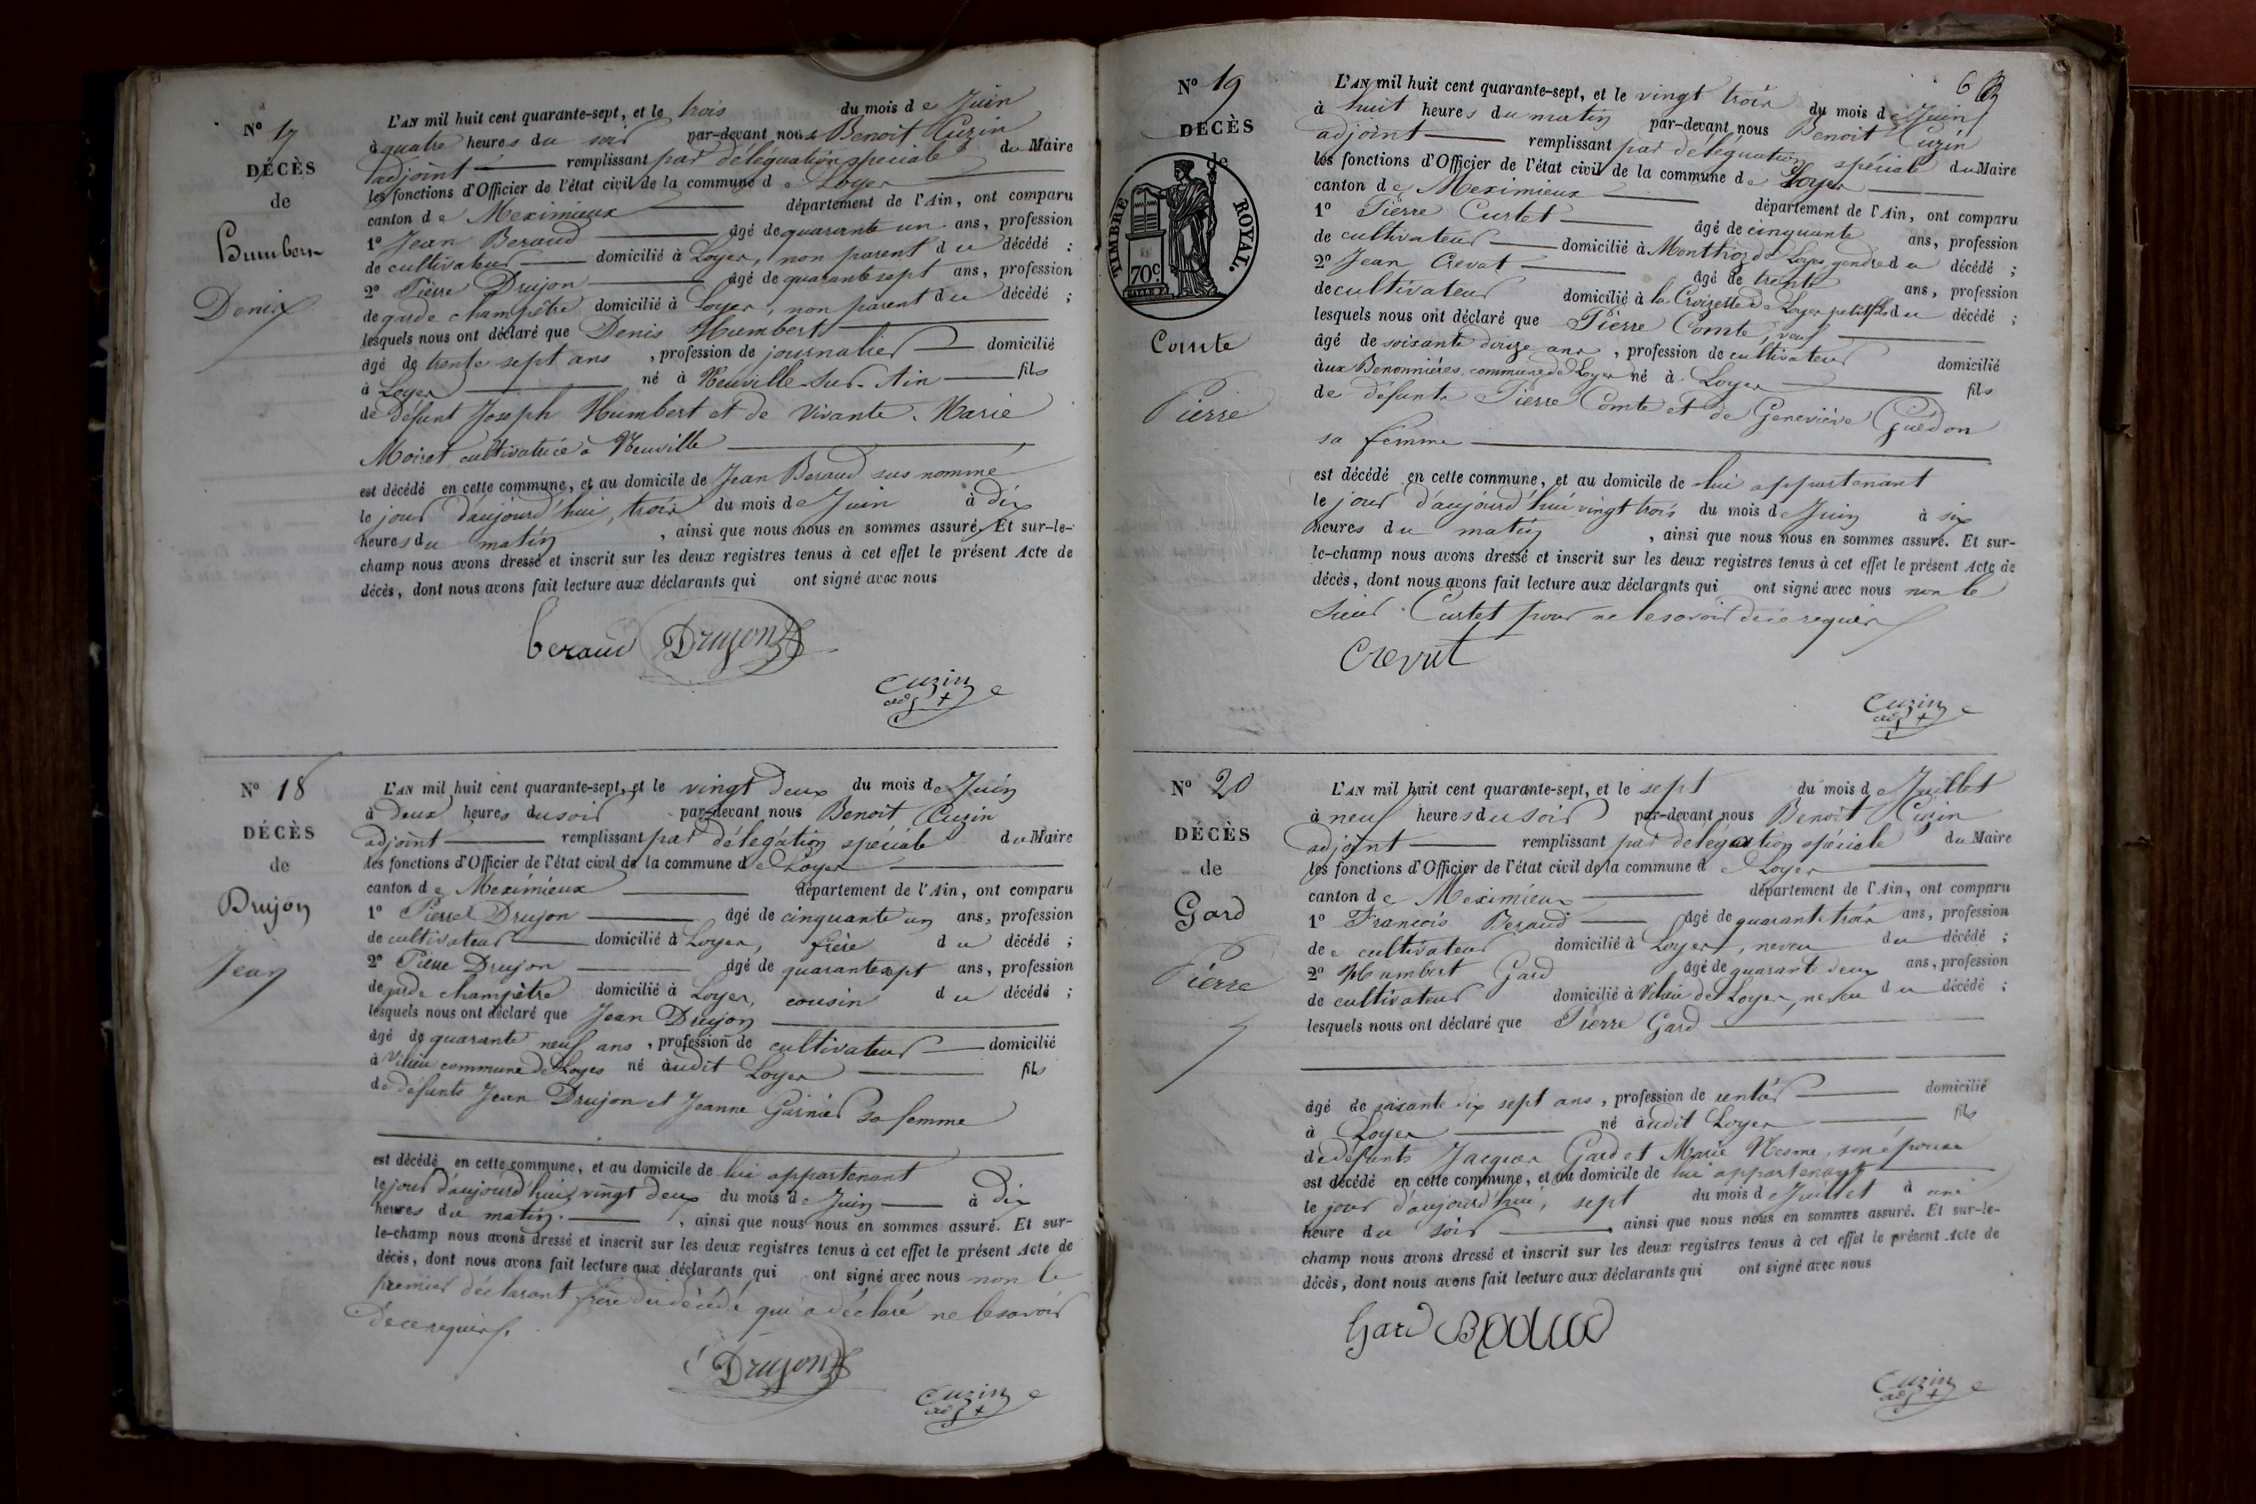 N° 17
DÉCÈS
de
Humbert
Denis
L'AN mil huit cent quarante-sept, et le trois du mois de Juin
à quatre heures du soir par-devant nous Benoit Cuzin
adjoint remplissant par délégation spéciale du Maire
les fonctions d'Officier de l'état civil de la commune de Loyes
canton de Meximieux département de l'Ain, ont comparu
1° Jean Beraud âgé de quarante un ans, profession
de cultivateur domicilié à Loyes, non parent du décédé ;
2° Pierre Drujon âgé de quarante sept ans, profession
de garde champêtre domicilié à Loyes, non parent du décédé ;
lesquels nous ont déclaré que Denis Humbert
âgé de trente sept ans, profession de journalier domicilié
à Loyes né à Neuville-sur-Ain fils
de défunt Joseph Humbert et de vivante Marie
Moiret cultivatrice à Neuville
est décédé en cette commune, et au domicile de Jean Beraud sus nommé
le jour d'aujourd'hui, trois du mois de Juin à dix
heures du matin, ainsi que nous nous en sommes assuré. Et sur-le-
champ nous avons dressé et inscrit sur les deux registres tenus à cet effet le présent Acte de
décès, dont nous avons fait lecture aux déclarants qui ont signé avec nous
beraud Drujon
Cuzin
adj
N° 18
DÉCÈS
de
Drujon
Jean
L'AN mil huit cent quarante-sept, et le vingt deux du mois de Juin
à deux heures du soir par-devant nous Benoit Cuzin
adjoint remplissant par délégation spéciale du Maire
les fonctions d'Officier de l'état civil de la commune de Loyes
canton de Meximieux département de l'Ain, ont comparu
1° Pierre Drujon âgé de cinquante un ans, profession
de cultivateur domicilié à Loyes, frère du décédé ;
2° Pierre Drujon âgé de quarante sept ans, profession
de garde champêtre domicilié à Loyes, cousin du décédé ;
lesquels nous ont déclaré que Jean Drujon
âgé de quarante neuf ans, profession de cultivateur domicilié
à Vilieu commune de Loyes né audit Loyes fils
de défunts Jean Drujon et Jeanne Garnier sa femme
est décédé en cette commune, et au domicile de lui appartenant
le jour d'aujourd'hui vingt deux du mois de Juin à dix
heures du matin, ainsi que nous nous en sommes assuré. Et sur-
le-champ nous avons dressé et inscrit sur les deux registres tenus à cet effet le présent Acte de
décès, dont nous avons fait lecture aux déclarants qui ont signé avec nous non le
premier déclarant frère du décédé qui a déclaré ne le savoir
de ce requis.
Drujon
Cuzin
adj
N° 19
DÉCÈS
de
TIMBRE ROYAL.
70c
Comte
Pierre
6
L'AN mil huit cent quarante-sept, et le vingt trois du mois de Juin
à huit heures du matin par-devant nous Benoit Cuzin
adjoint remplissant par délégation spéciale du Maire
les fonctions d'Officier de l'état civil de la commune de Loyes
canton de Meximieux département de l'Ain, ont comparu
1° Pierre Curtet âgé de cinquante ans, profession
de cultivateur domicilié à Monthoz de Loyes gendre du décédé ;
2° Jean Crevat âgé de trente ans, profession
de cultivateur domicilié à la Croizette de Loyes petit fils du décédé ;
lesquels nous ont déclaré que Pierre Comte, veuf
âgé de soixante douze ans, profession de cultivateur domicilié
aux Benonnières commune de Loyes né à Loyes fils
de défunts Pierre Comte et de Geneviève Guédon
sa femme
est décédé en cette commune, et au domicile de lui appartenant
le jour d'aujourd'hui vingt trois du mois de Juin à six
heures du matin, ainsi que nous nous en sommes assuré. Et sur-
le-champ nous avons dressé et inscrit sur les deux registres tenus à cet effet le présent Acte de
décès, dont nous avons fait lecture aux déclarants qui ont signé avec nous non le
sieur Curtet pour ne le savoir de ce requis
Crevat
Cuzin
adj
N° 20
DÉCÈS
de
Gard
Pierre
L'AN mil huit cent quarante-sept, et le sept du mois de Juillet
à neuf heures du soir par-devant nous Benoit Cuzin
adjoint remplissant par délégation spéciale du Maire
les fonctions d'Officier de l'état civil de la commune de Loyes
canton de Meximieux département de l'Ain, ont comparu
1° François Beraud âgé de quarante trois ans, profession
de cultivateur domicilié à Loyes, neveu du décédé ;
2° Humbert Gard âgé de quarante deux ans, profession
de cultivateur domicilié à Vilieu de Loyes, neveu du décédé ;
lesquels nous ont déclaré que Pierre Gard
âgé de soixante dix sept ans, profession de rentier domicilié
à Loyes né audit Loyes fils
de défunts Jacques Gard et Marie Nesme, son épouse
est décédé en cette commune, et au domicile de lui appartenant
le jour d'aujourd'hui, sept du mois de Juillet à une
heure du soir, ainsi que nous nous en sommes assuré. Et sur-le-
champ nous avons dressé et inscrit sur les deux registres tenus à cet effet le présent Acte de
décès, dont nous avons fait lecture aux déclarants qui ont signé avec nous
Gard
Cuzin
adj